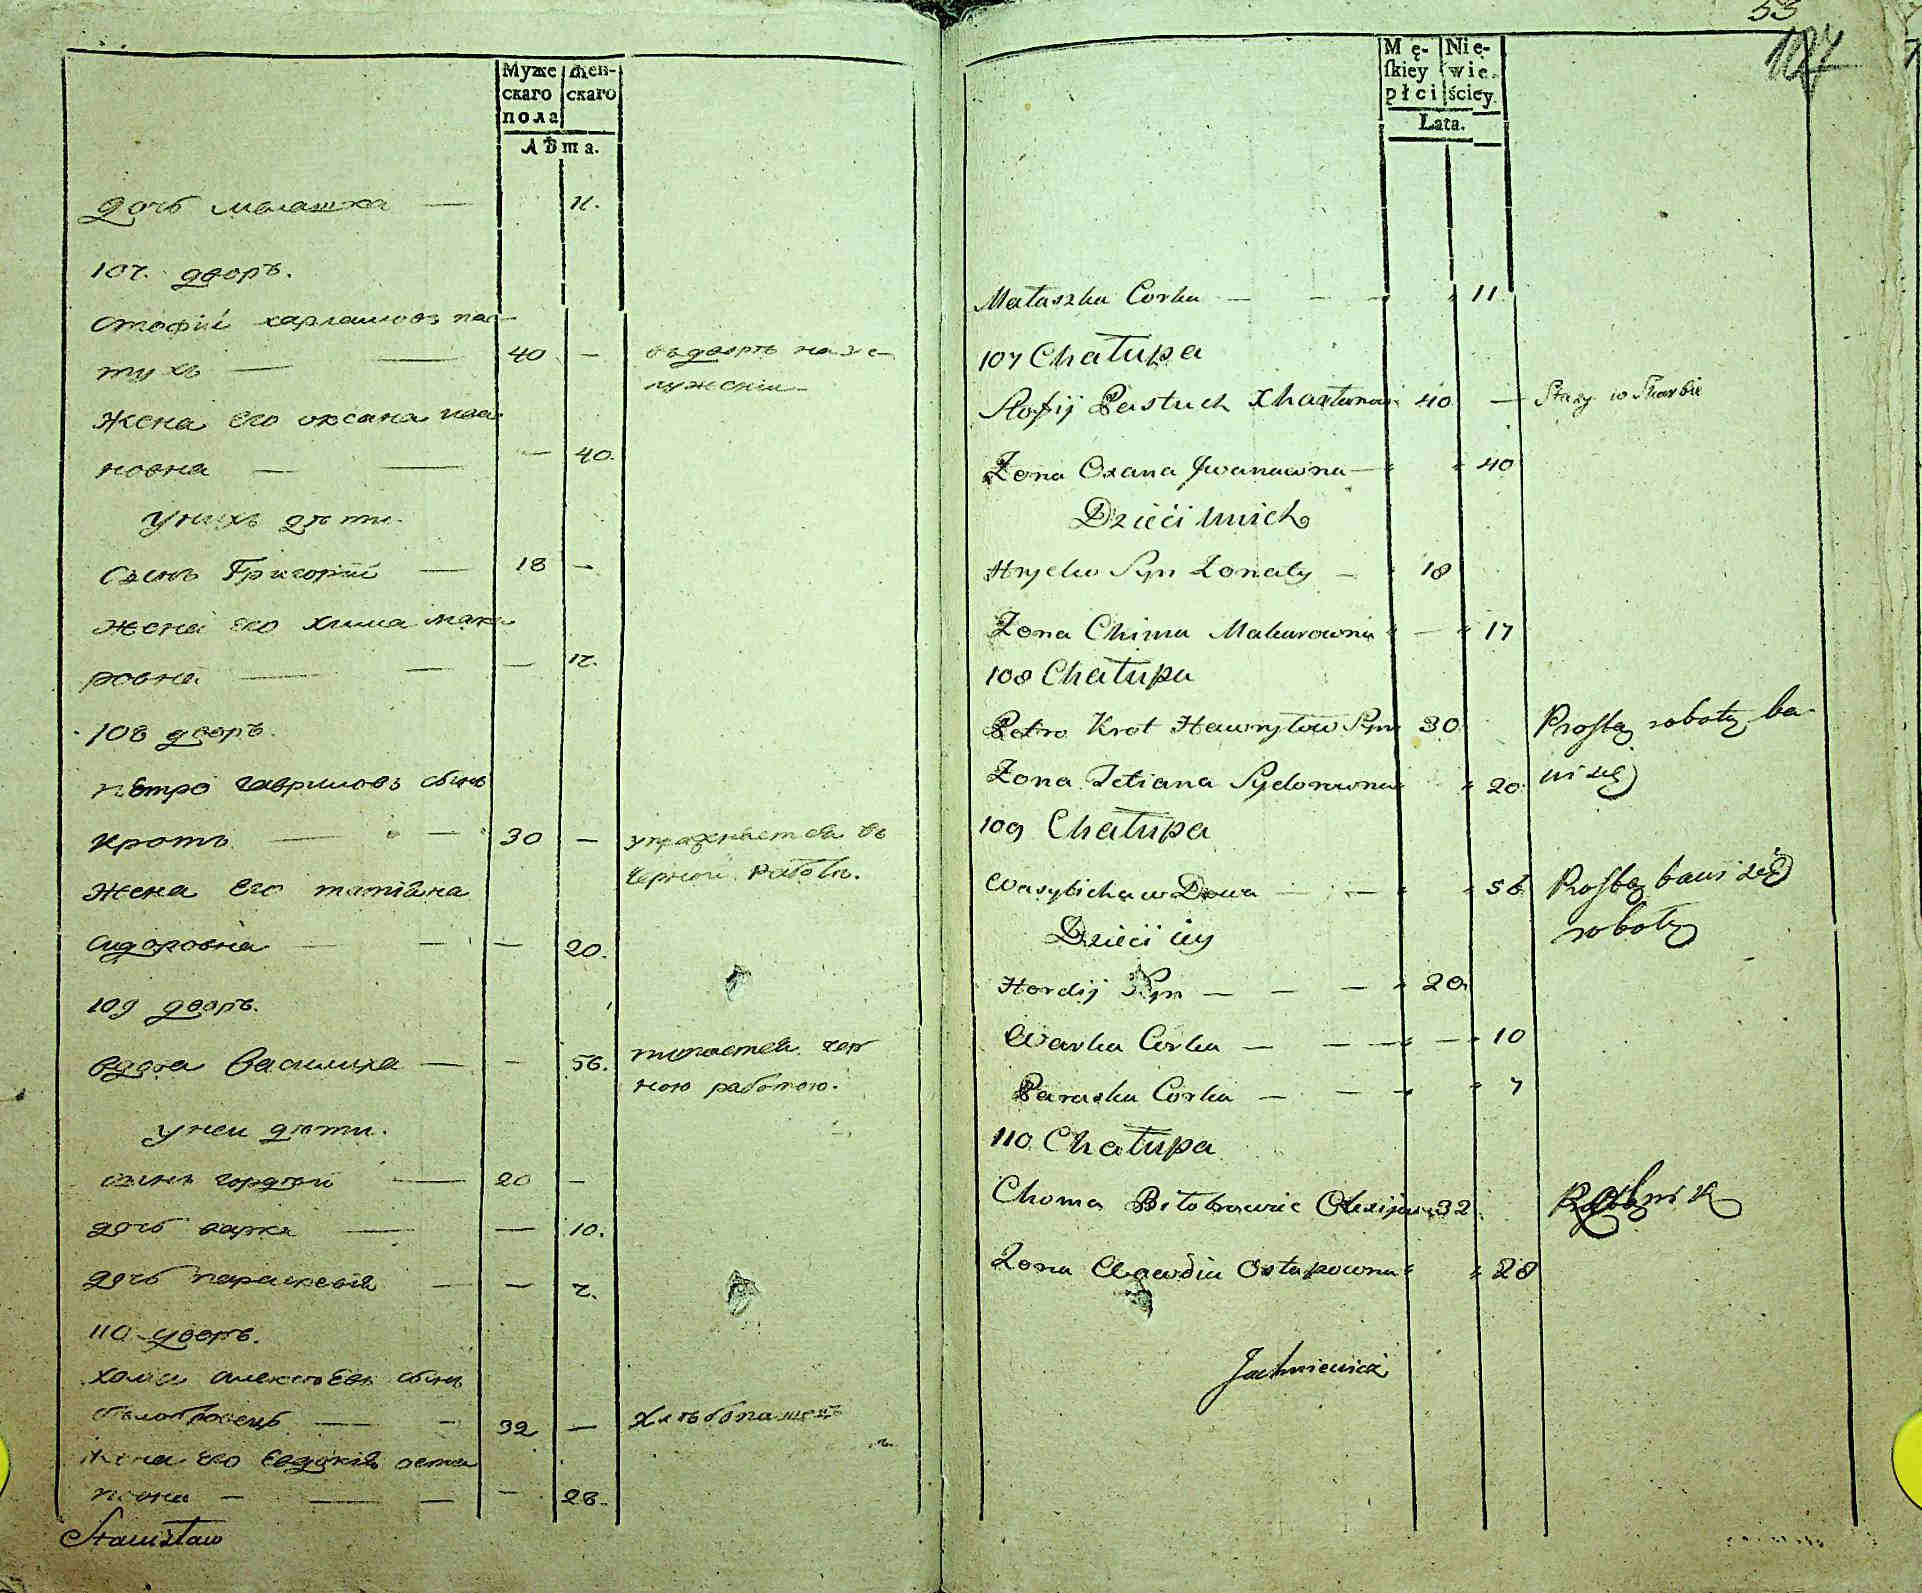 Муже
скаго
пола
жен-
скаго
Лѣта.
дочь малашка — 11.
107. дворъ.
стофій харламовъ пас-
тухъ — — 40 —
въ дворѣ на за-
жена его оксана ива
новна — — — 40.
у нихъ дѣти.
сынъ Григорій — 18 —
жена его хима мака
ровна — — — 17.
108 дворъ.
пѣтро гавриловъ сынъ
кротъ — — 30 —
упражняется въ
черной работѣ.
жена его татіана
сидоровна — — — 20.
109 дворъ.
вдова Василиха — — 56.
питается чер
ною работою.
у неи дѣти.
сынъ гордѣй — 20 —
дочь варка — — 10.
дочь параскевія — — 7.
110 дворъ.
хома алексѣевъ сынъ
бѣлобровецъ — — 32 —
хлѣбопашецъ
жена его евдокія оста
повна — — — — 28.
Stanisław
53
107
Mę-
ſkiey
płci
Nie-
wie-
ściey.
Lata.
Małaszka Corka — — — 11
107 Chałupa
Stofij Pastuch Charłamow 40 —
Służy w Skarbie
Żona Oxana Jwanawna — 40
Dzieci unich
Hryćko Syn Żonaty — 18
Żona Chima Makarowna — 17
108 Chałupa
Petro Krot Hawryłow Syn 30
Prostą roboty ba-
wi się
Żona Tetiana Sydorowna 20
109 Chałupa
Wasylicha wDowa — — 56
Prostą bawi się
roboty
Dzieci iey
Hordij Syn — — — 20
Warka Corka — — — — 10
Paraska Corka — — — 7
110 Chałupa
Choma Biłobrowiec Olexijow 32
Rolnik
Żona Ewdia Ostapowna 28
Jachniewicz